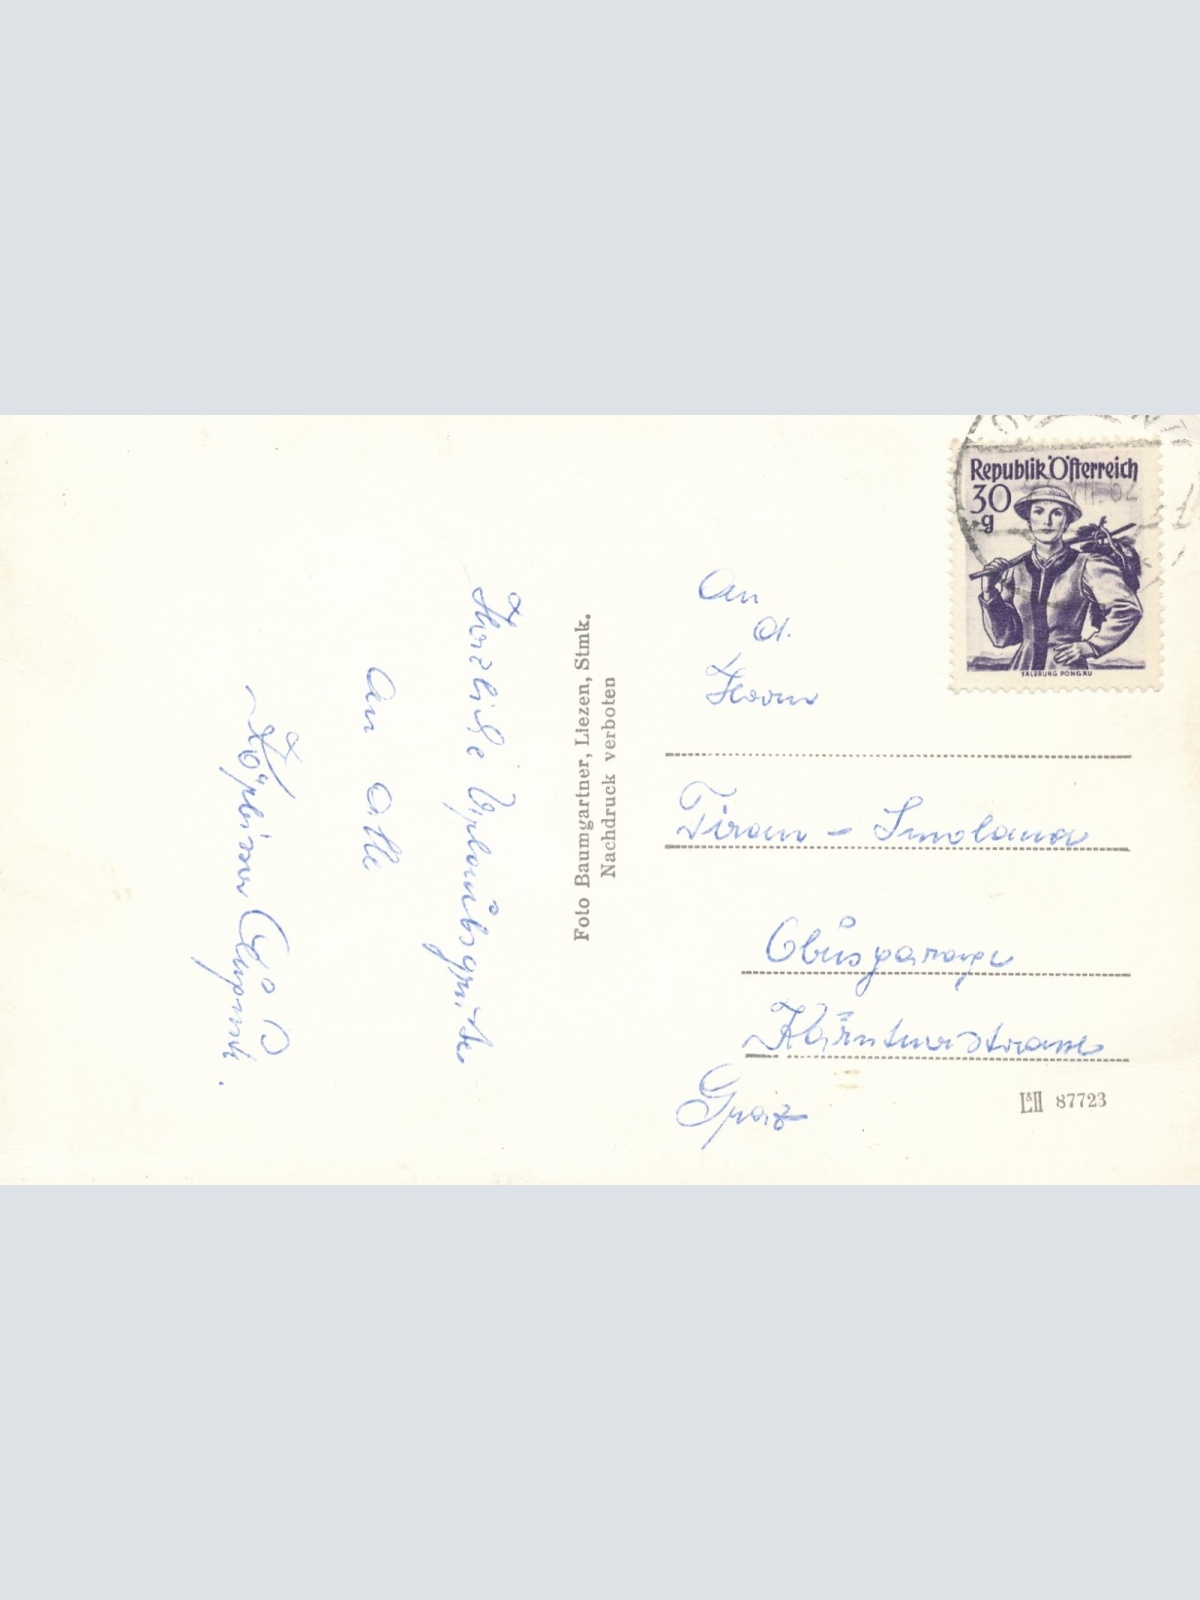 Herzliche Urlaubsgrüße
an alle
Foto Baumgartner, Liezen, Stmk.
Nachdruck verboten
Republik Österreich
30
g
SALZBURG PONGAU
VII. 62
An
d.
Herrn
Tiran - Smolana
Obusgarage
Kärntnerstrasse
Graz
L&H 87723